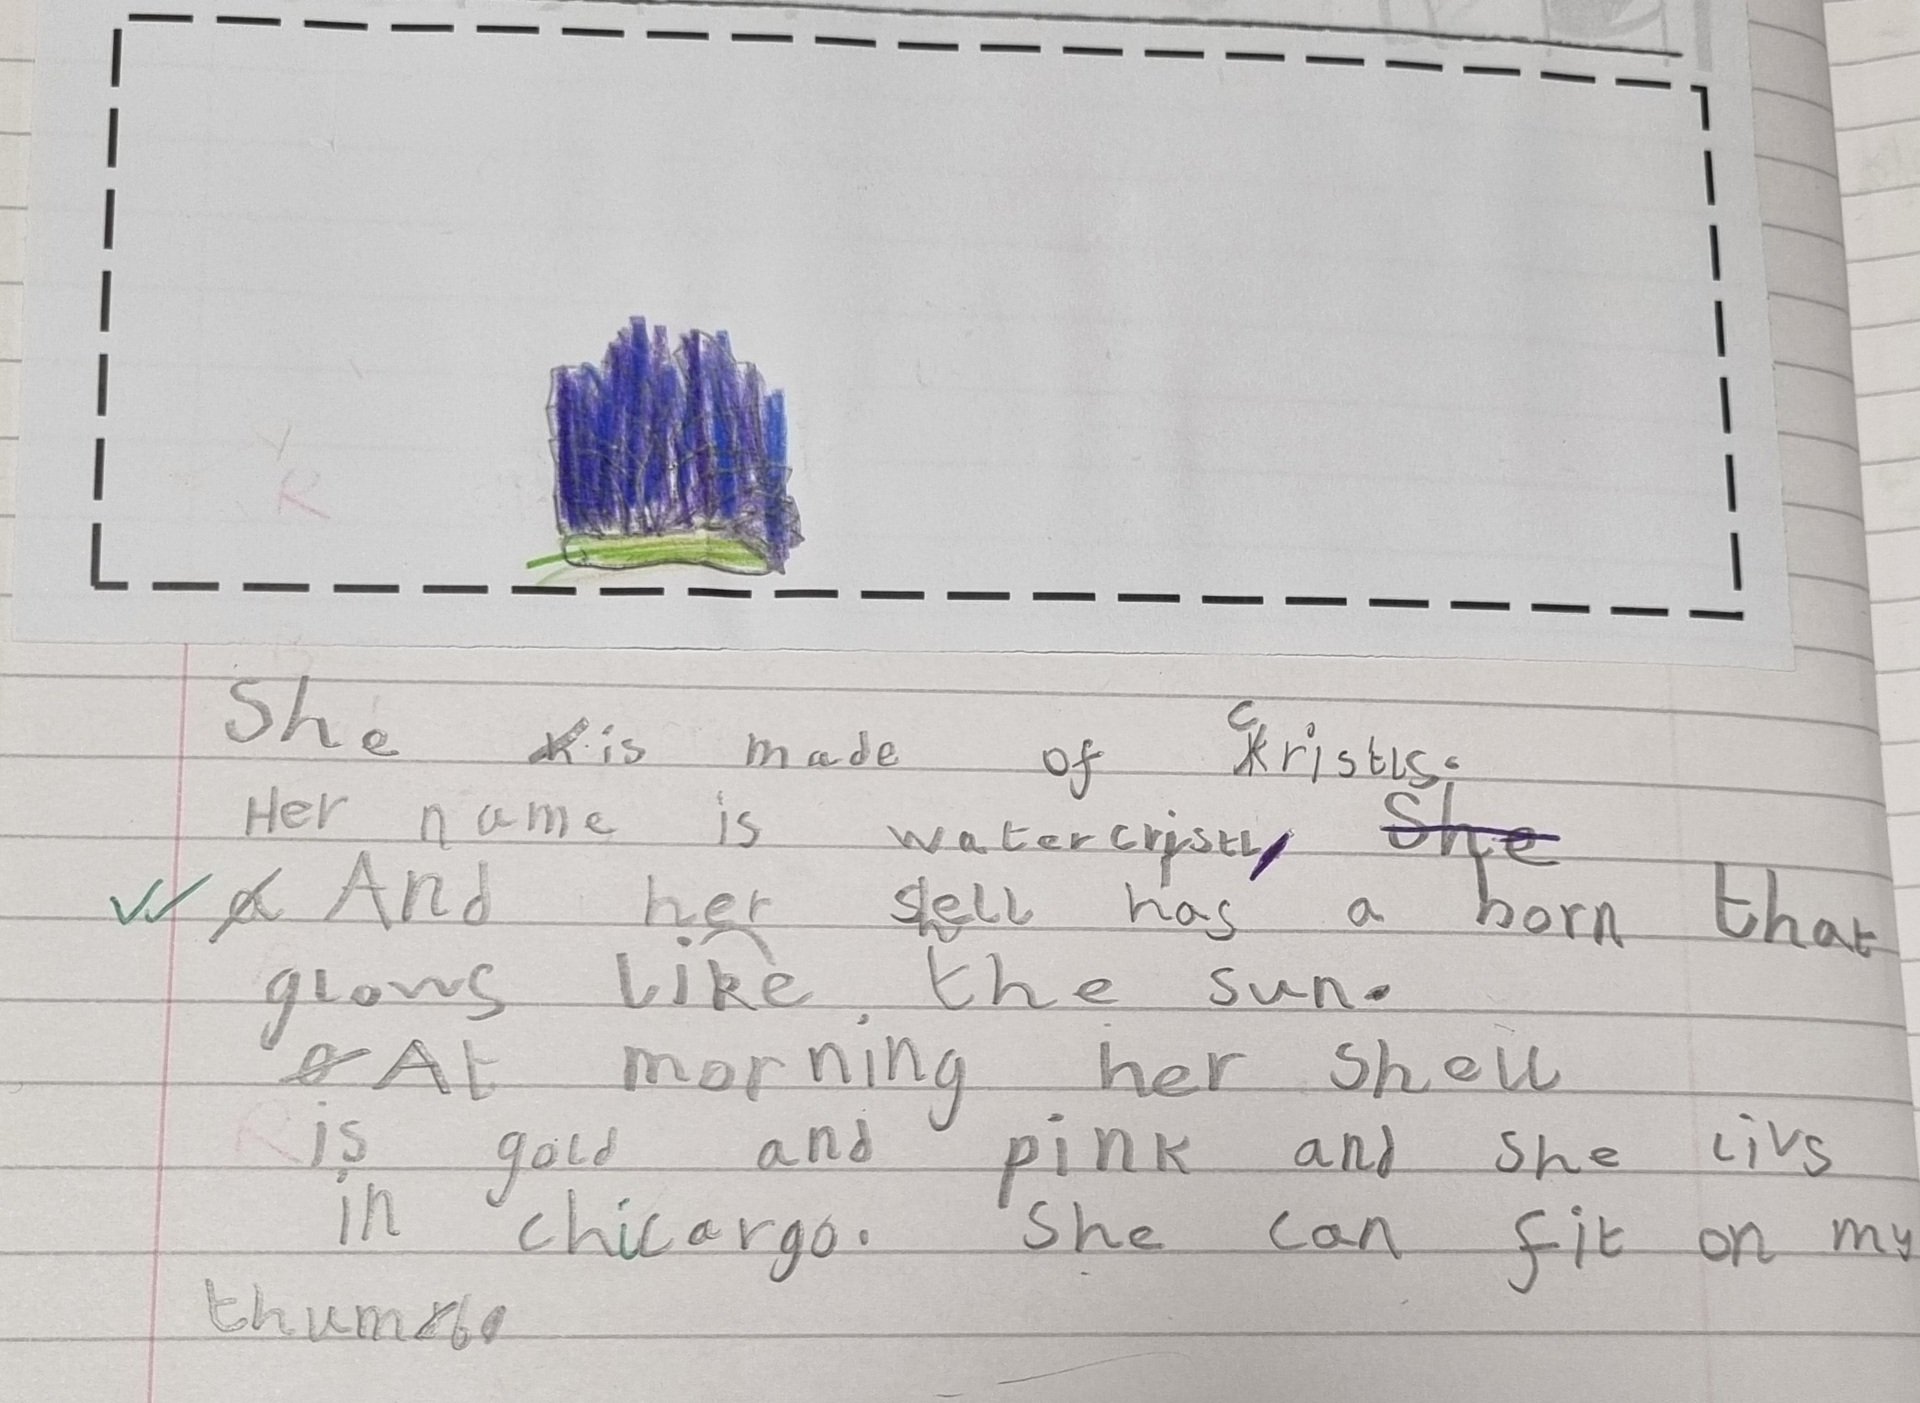 She is made of cristls.
Her name is watercristl, She
And her shell has a horn that
glows like the sun.
At morning her shell
is gold and pink and she livs
in chicargo. She can fit on my
thumb.